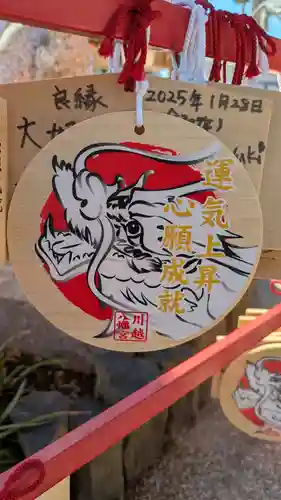 良縁
2025年1月28日
運気上昇
心願成就
川越
八幡宮